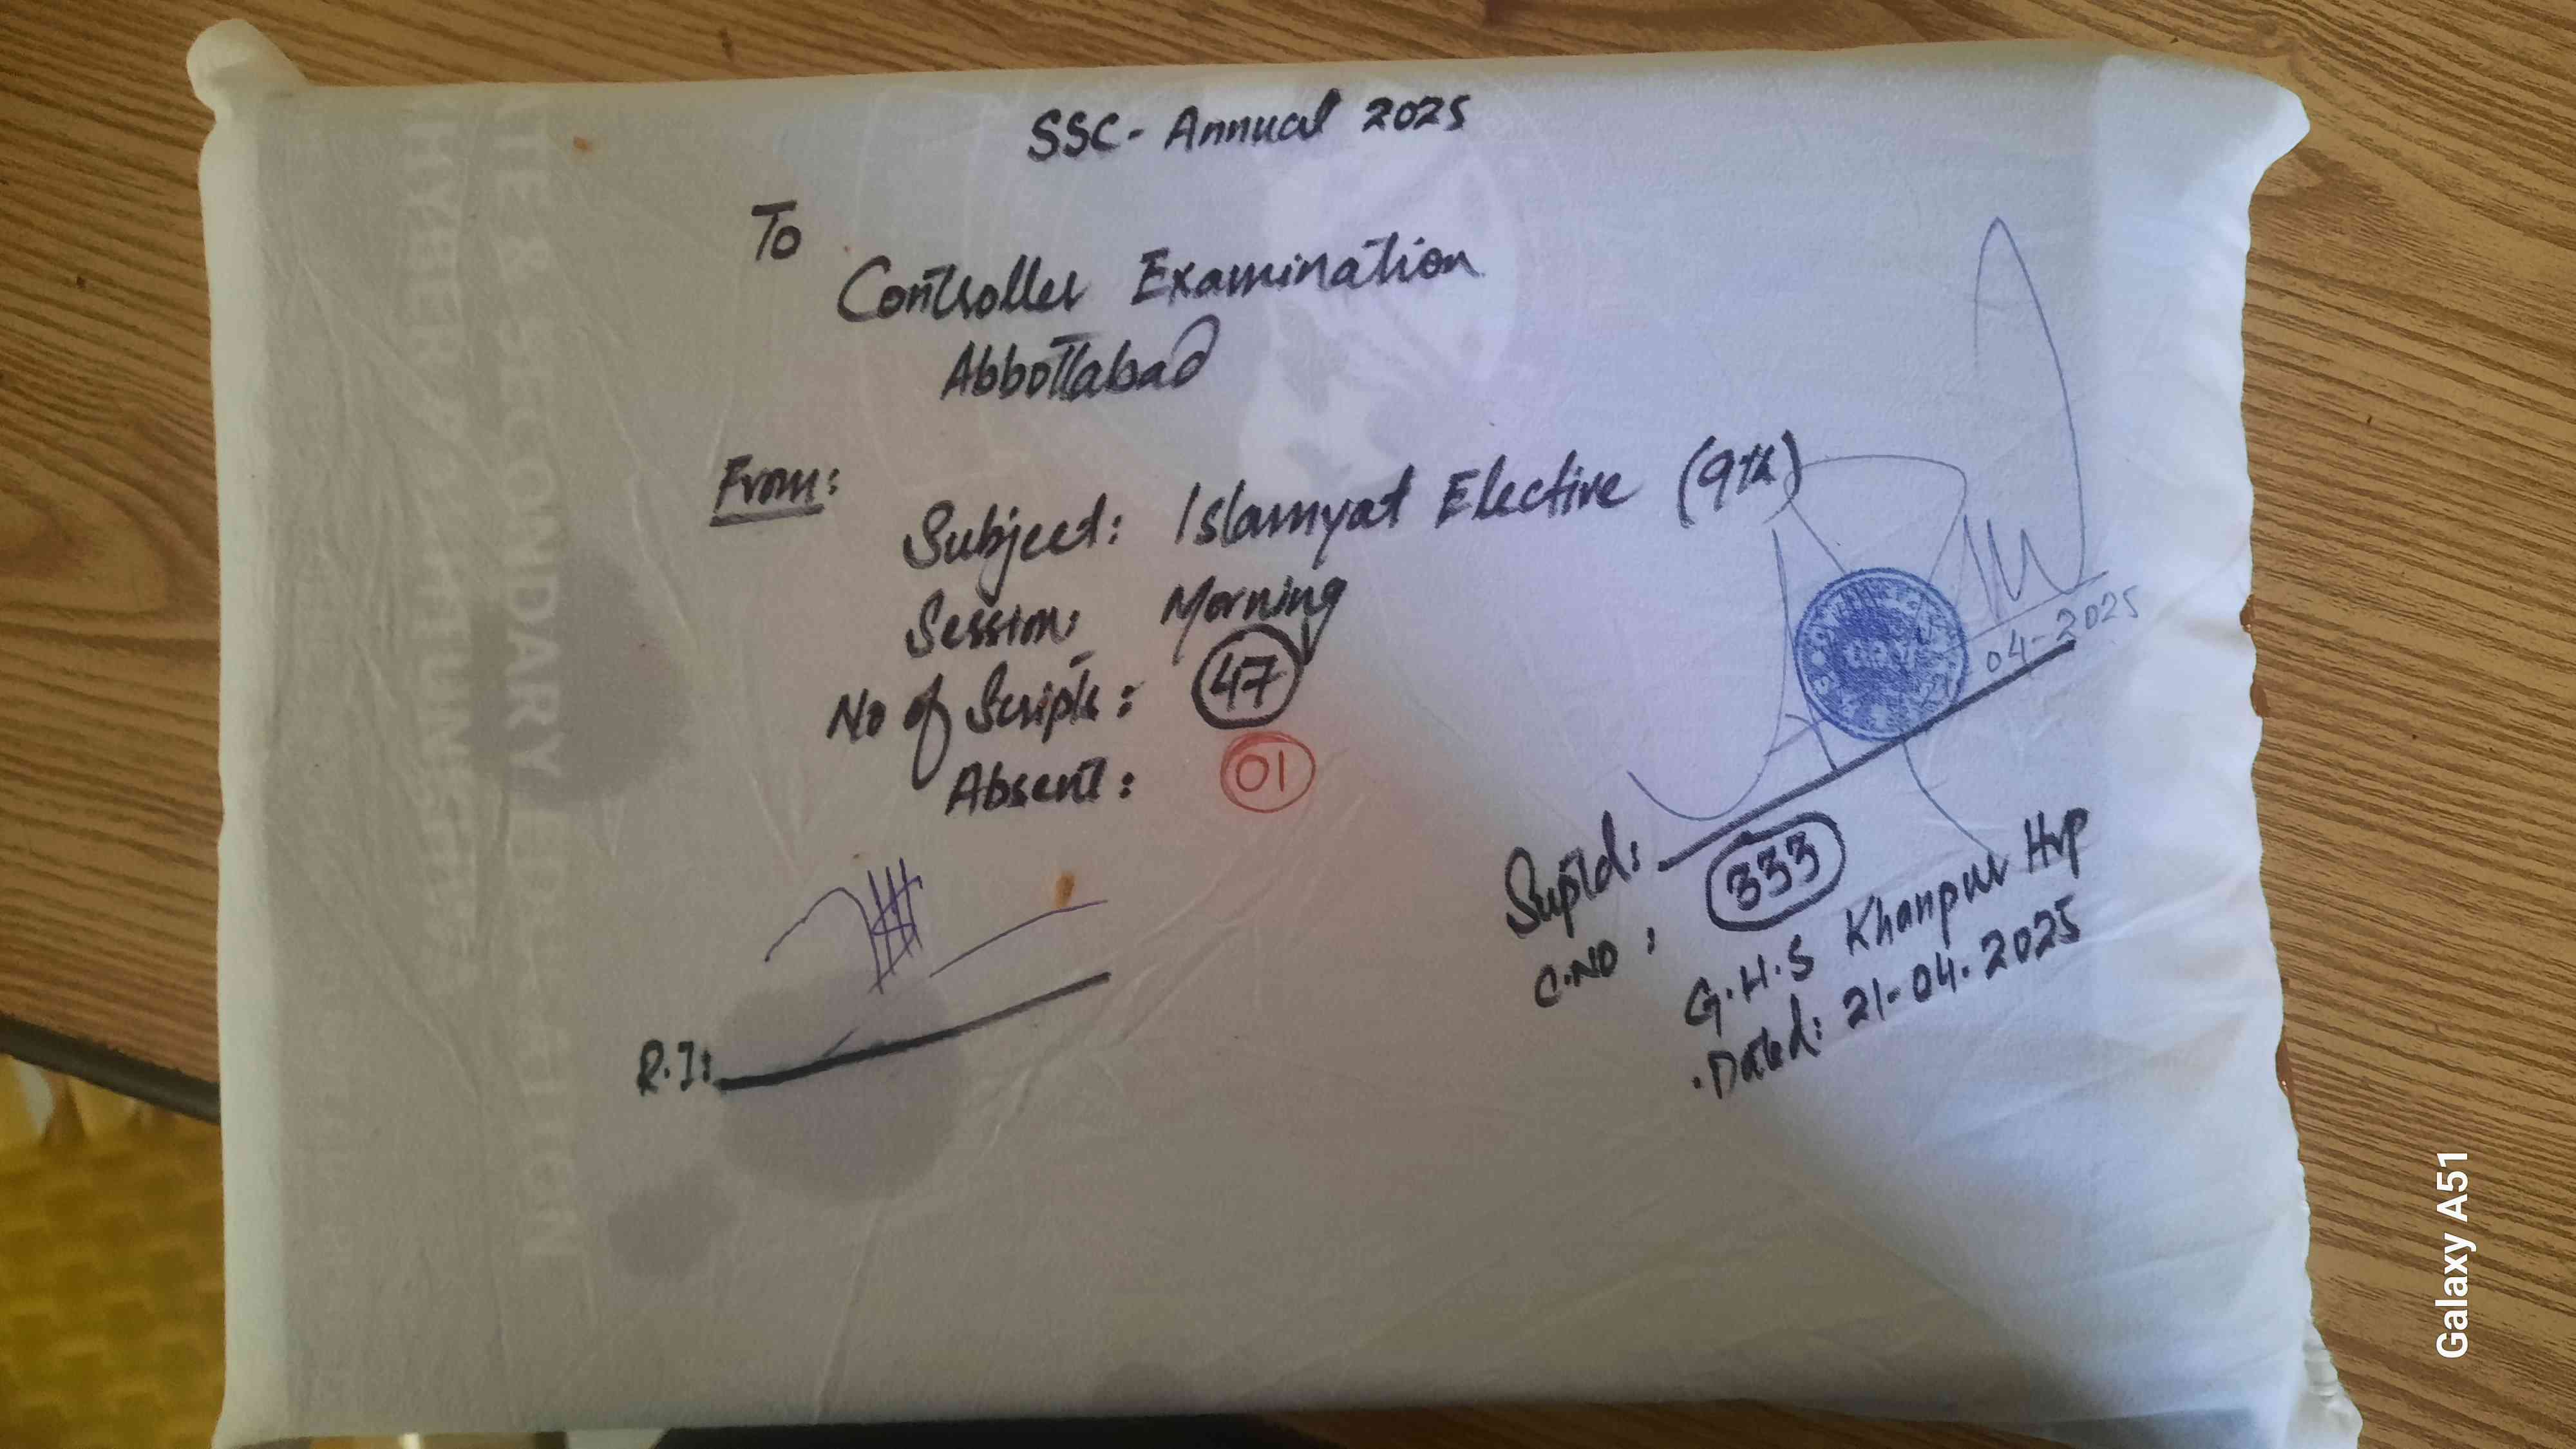 SSC- Annual 2025
To
Controller Examination
Abbottabad
From:
Subject: Islamyat Elective (9th)
Session: Morning
No of Scripts: 47
Absent: 01
04-2025
Suptd:
C.NO: 333
G.H.S Khanpur Hrp
Dated: 21-04-2025
R.I:
& SECONDARY EDUCATION
Galaxy A51